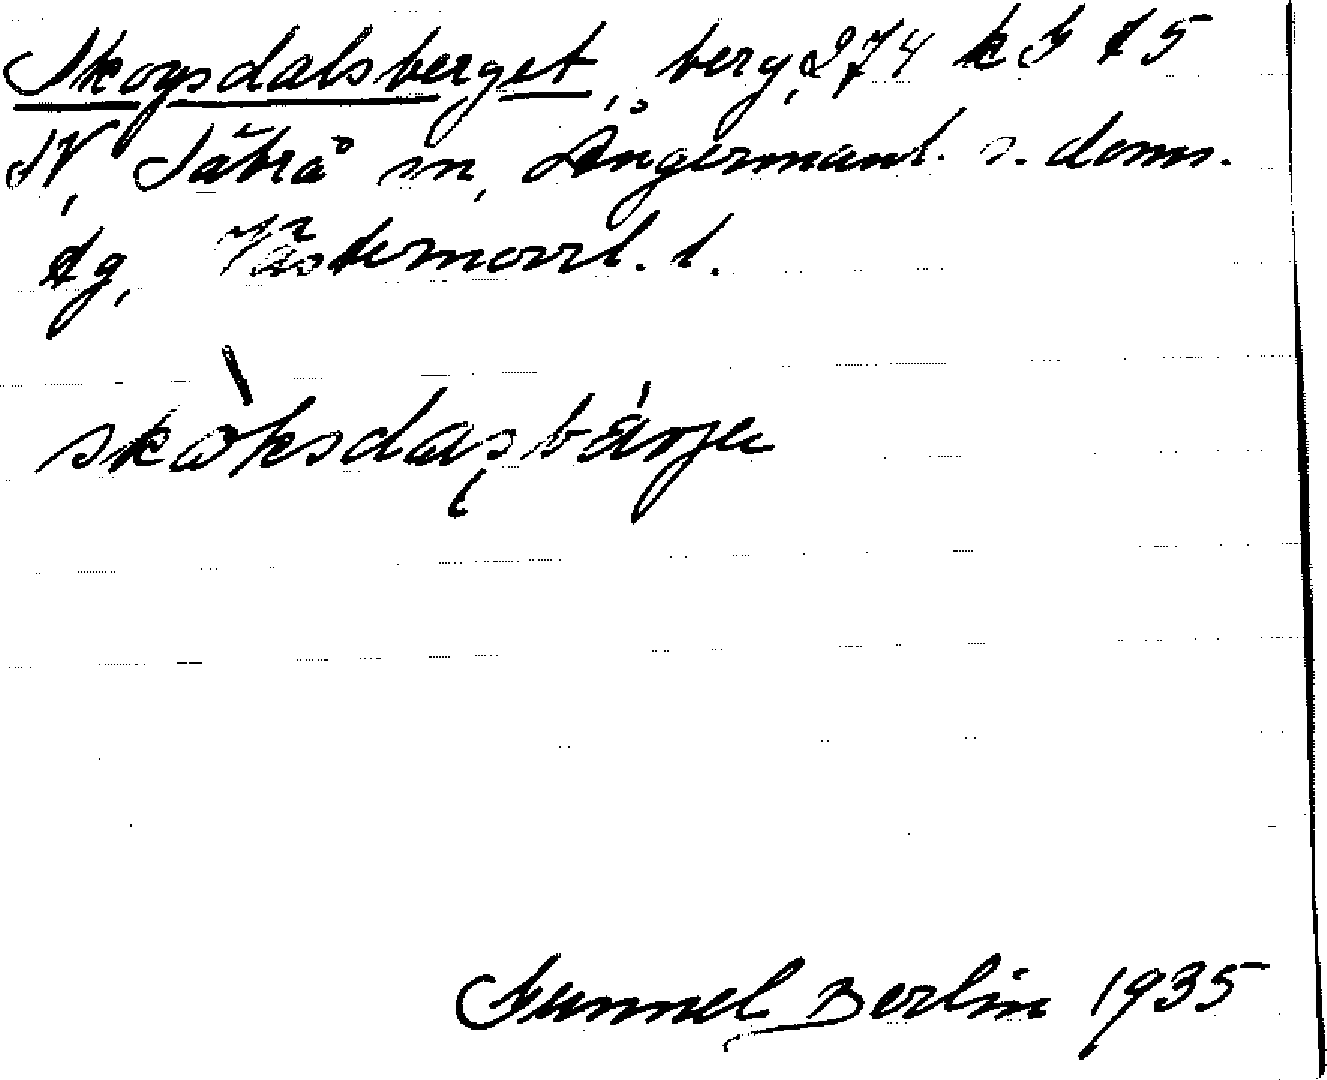 Skogsdalsberget, berg, 274 k F 15
SV, Säbrå sn, Ångermanl. s. doms.
tg, Västernorrl. l.
skòksdaşbárje
Gunnel Berlin 1935